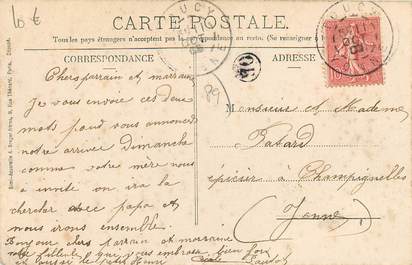 10 €
CARTE POSTALE
Tous les pays étrangers n'acceptent pas la correspondance au recto. (Se renseigner à
CORRESPONDANCE
ADRESSE
Chers parrain et marraine
Je vous envoie ces deux
mots pour vous annoncer
notre arriver Dimanche
comme votre mère nous
a invité on ira la
chercher avec papa et
nous irons ensemble
Bonjour chers parrain et marraine
votre fillette que vous embrasse bien fort
un baiser de petit Henri
Monsieur et Madame
Tatard
épicier à Champignelles
(Yonne)